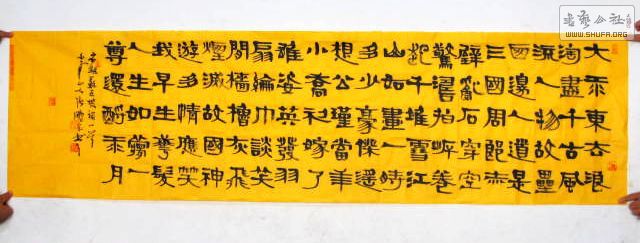 大江東去浪
淘盡千古風
流人物故壘
西邊人道是
三國周郎赤
壁亂石穿空
驚濤拍岸卷
起千堆雪江
山如畫一時
多少豪傑遙
想公瑾當年
小喬初嫁了
雄姿英發羽
扇綸巾談笑
間檣櫓灰飛
煙滅故國神
遊多情應笑
我早生華髮
人生如夢一
尊還酹江月
书艺公社
WWW.SHUFA.ORG